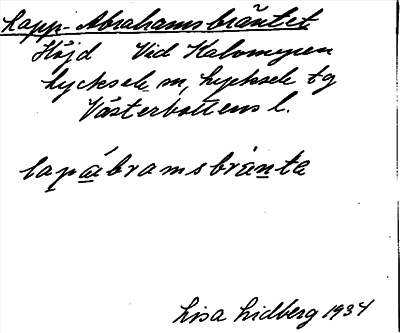 Lapp-Abrahamsbräntet
Höjd Vid Kalvmyren
Lycksele m, Lycksele tg
Västerbottens l.
lapábramsbränte
Lisa Lidberg 1934